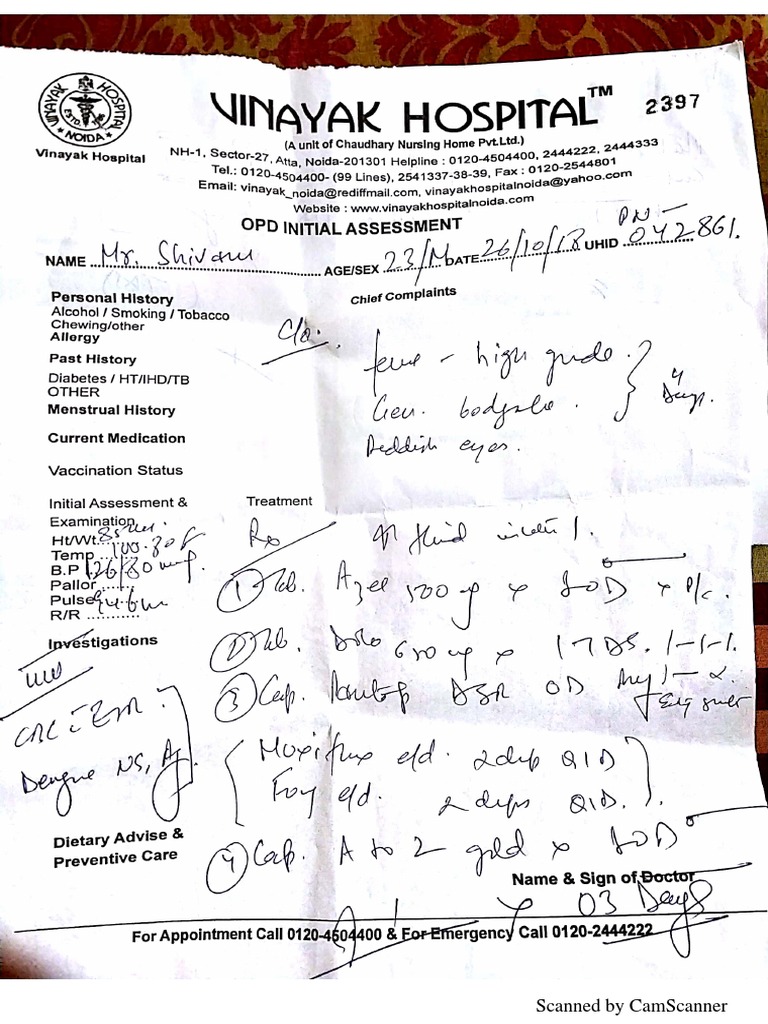 VINAYAK HOSPITAL NOIDA ESTD.
Vinayak Hospital
VINAYAK HOSPITAL™ 2397
(A unit of Chaudhary Nursing Home Pvt.Ltd.)
NH-1, Sector-27, Atta, Noida-201301 Helpline : 0120-4504400, 2444222, 2444333
Tel.: 0120-4504400- (99 Lines), 2541337-38-39, Fax : 0120-2544801
Email: vinayak_noida@rediffmail.com, vinayakhospitalnoida@yahoo.com
Website : www.vinayakhospitalnoida.com
OPD INITIAL ASSESSMENT
NAME Mr. Shivam AGE/SEX 23/M DATE 26/10/18 UHID 042861.
Personal History Chief Complaints
Alcohol / Smoking / Tobacco
Chewing/other
Allergy
c/o.
Past History
fever - high grade.
Diabetes / HT/IHD/TB
OTHER
Menstrual History
Gen. bodyache. 4 Days.
Current Medication
Reddish eyes.
Vaccination Status
Initial Assessment & Treatment
Examination
Ht/Wt.
Rx
Temp
B.P 126/80
Pallor
① Tab. Azee 500 mg x OD x
Pulse
R/R
Investigations
② Tab. Dolo 650 mg x TDS. 1-1-1.
③ Cap. Pantop DSR OD
CBC ESR
Dengue NS, Ag
Moxiflox e/d. 2 drops QID
e/d. 2 drops QID.
Dietary Advise &
Preventive Care
④ Cap. A to Z gold x OD
Name & Sign of Doctor
x 03 Days
For Appointment Call 0120-4504400 & For Emergency Call 0120-2444222
Scanned by CamScanner